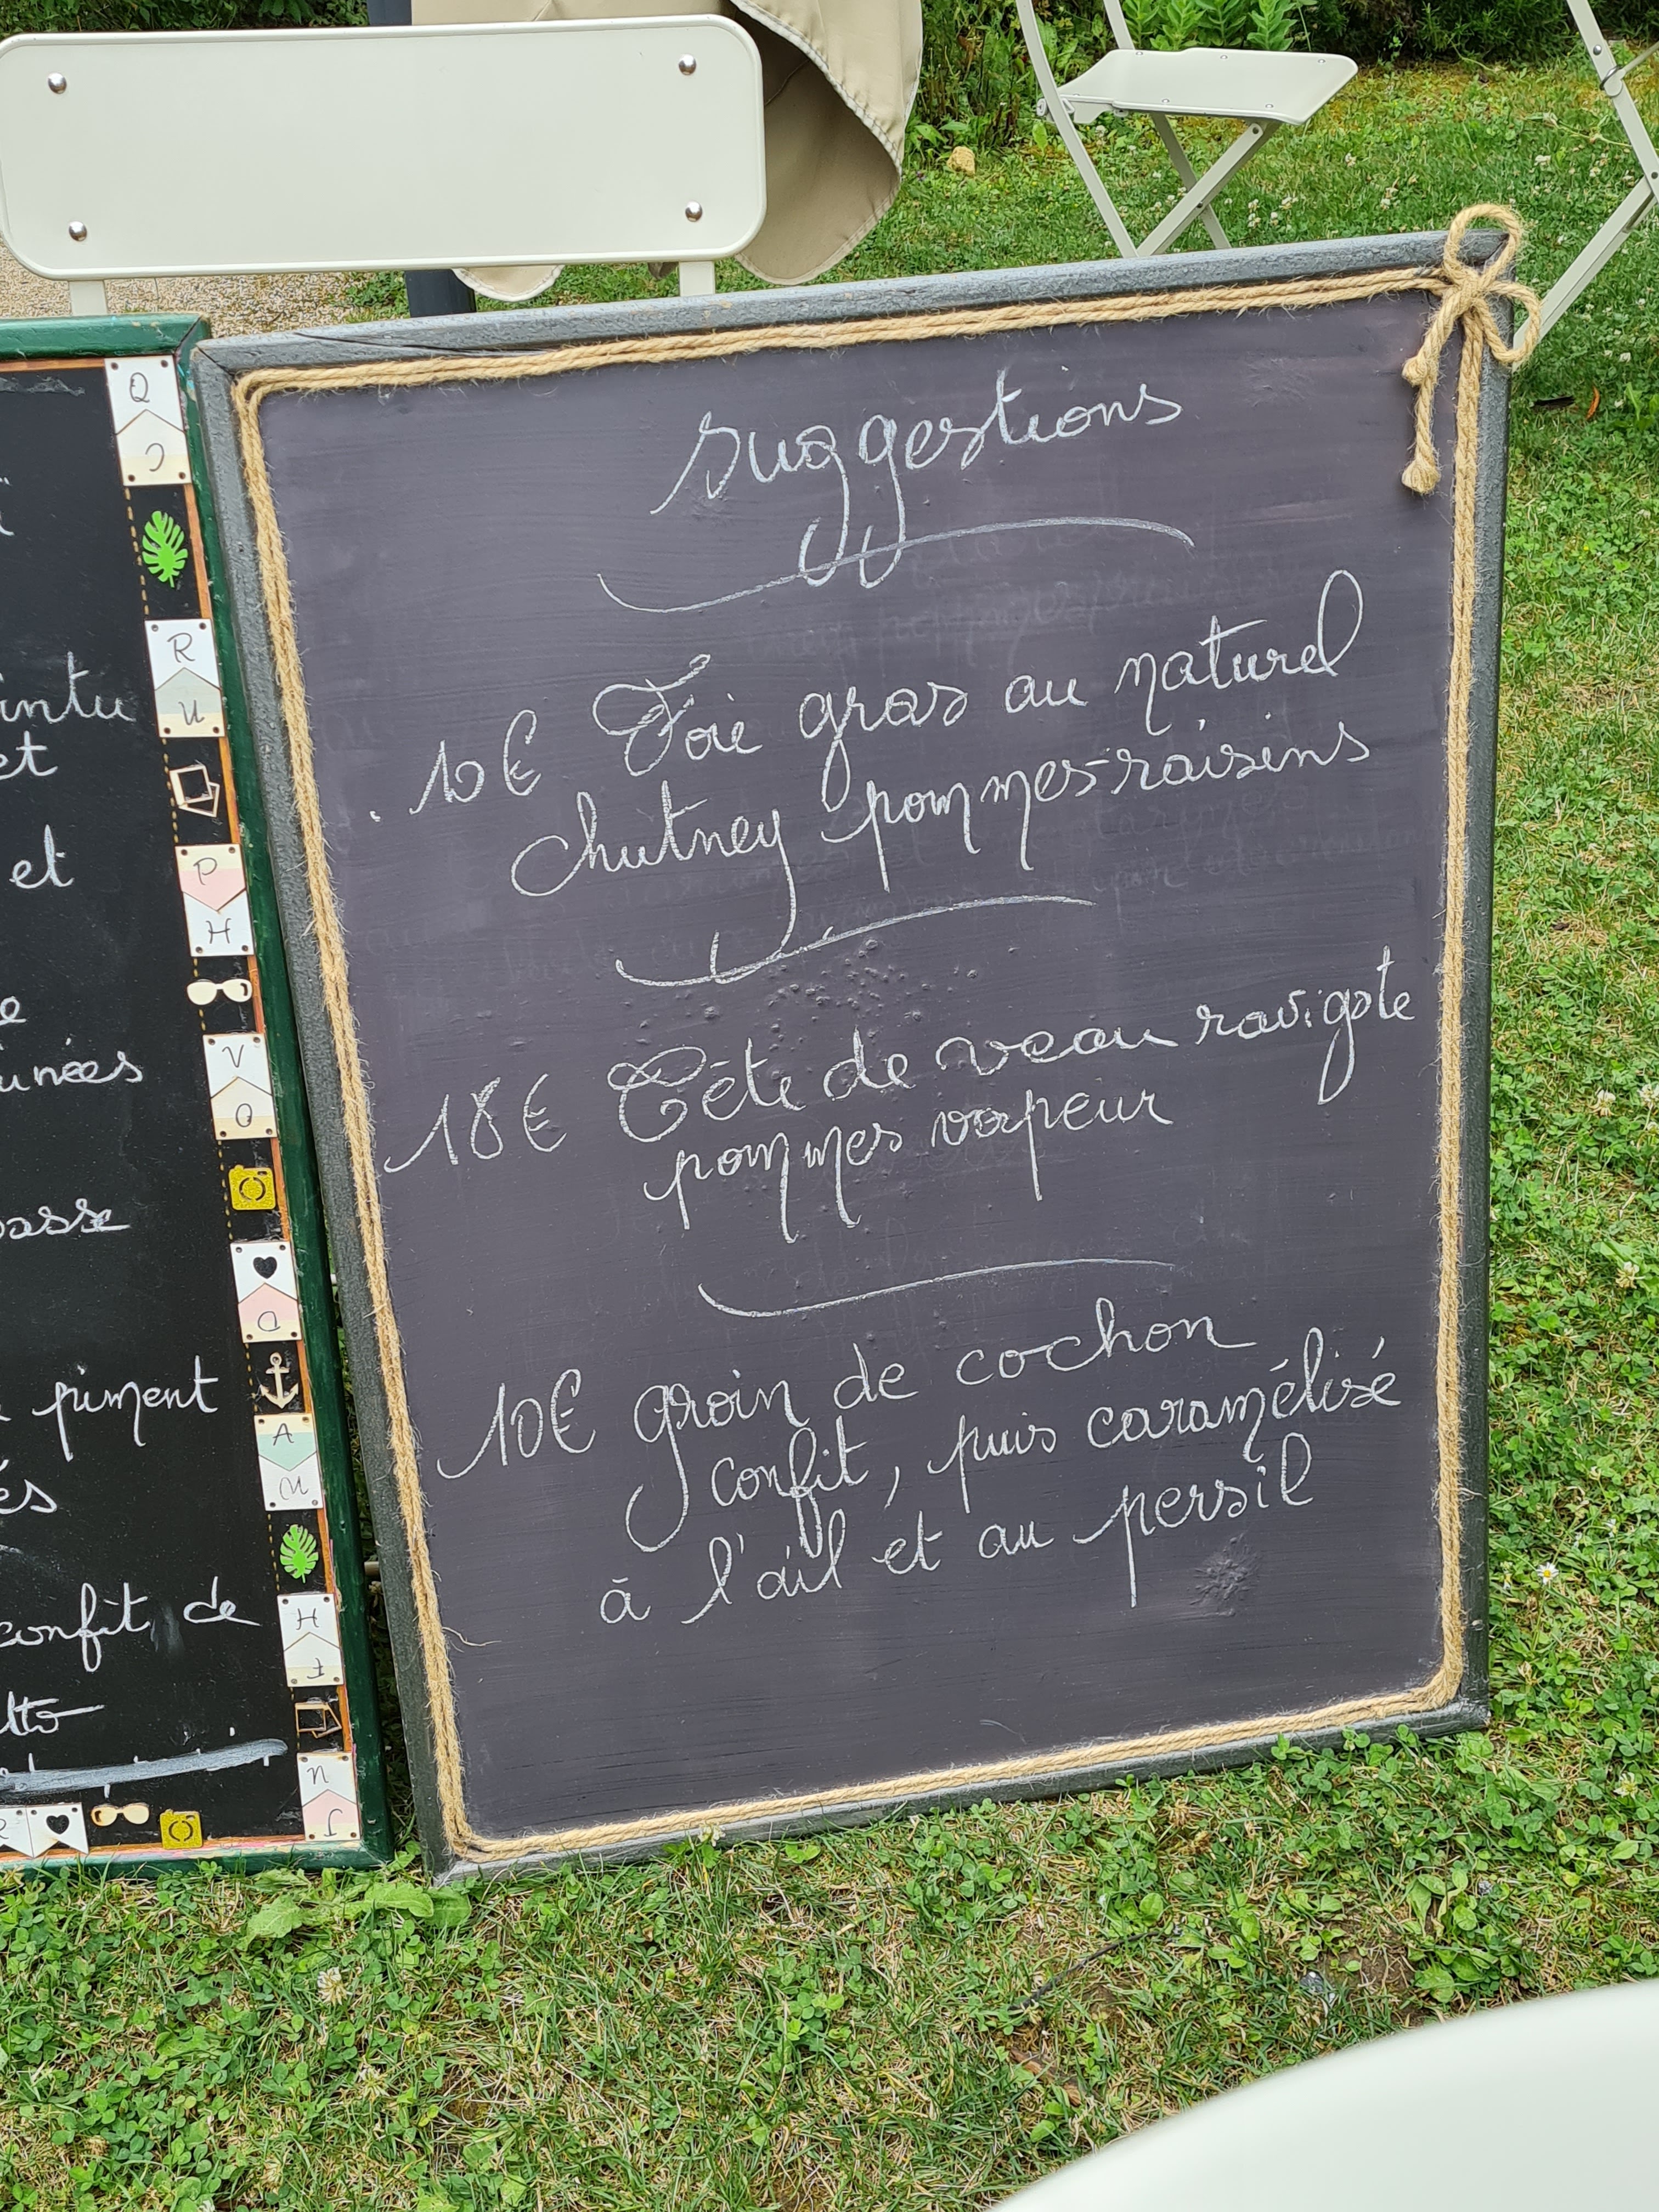 suggestions
10€ Foie gras au naturel
chutney pommes-raisins
18€ Tête de veau ravigote
pommes vapeur
10€ groin de cochon
confit, puis caramélisé
à l'ail et au persil
et
et
piment
confit, de
Q
R
U
P
H
V
O
A
H